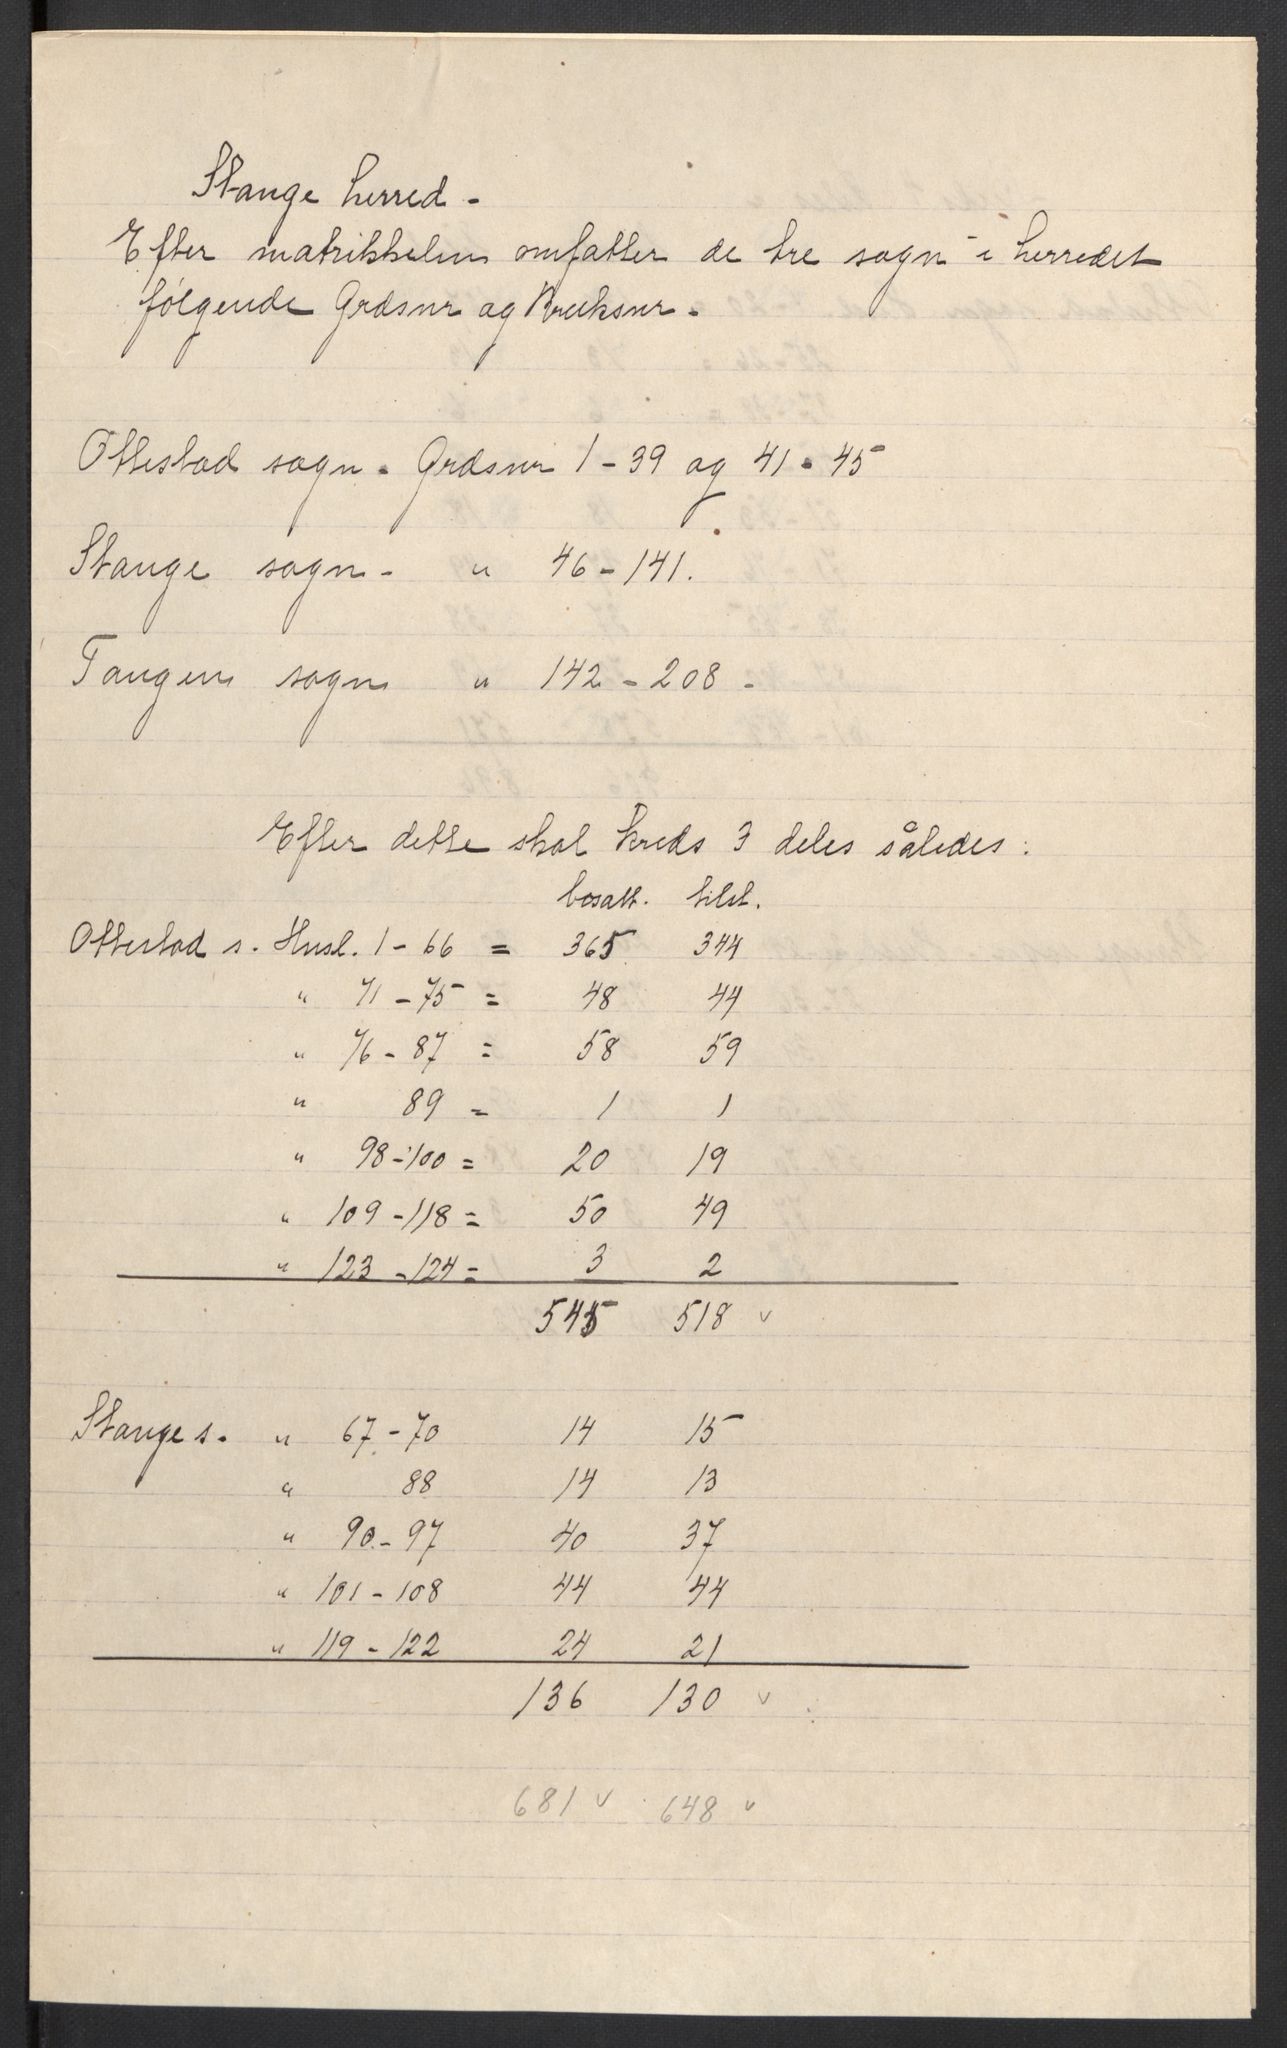 Stange herred.
Efter matrikkelen omfatter de tre sogn i herredet
følgende Grdsnr og Bruksnr.
Ottestad sogn. Grdsnr 1-39 og 41-45
Stange sogn - " 46-141.
Tangen sogn " 142-208.
Efter dette skal kreds 3 deles således:
bosatt. tilst.
Ottestad s. Husl. 1-66 = 365 344
" 71-75 = 48 44
" 76-87 = 58 59
" 89 = 1 1
" 98-100 = 20 19
" 109-118 = 50 49
" 123-124 = 3 2
545 518 v
Stange s. " 67-70 14 15
" 88 14 13
" 90-97 40 37
" 101-108 44 44
" 119-122 24 21
136 130 v
681 v 648 v